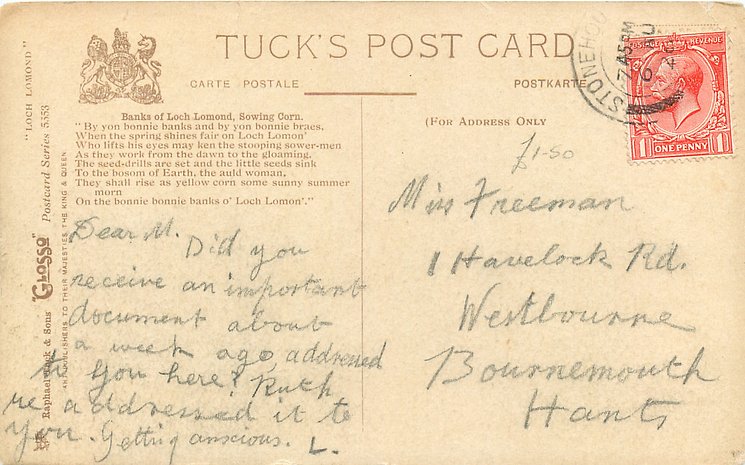 TUCK'S POST CARD
CARTE POSTALE
POSTKARTE
(FOR ADDRESS ONLY
Banks of Loch Lomond, Sowing Corn.
"By yon bonnie banks and by yon bonnie braes,
When the spring shines fair on Loch Lomon'
Who lifts his eyes may ken the stooping sower-men
As they work from the dawn to the gloaming.
The seed-drills are set and the little seeds sink
To the bosom of Earth, the auld woman,
They shall rise as yellow corn some sunny summer
morn
On the bonnie bonnie banks o' Loch Lomon'."
Dear M. Did you
receive an important
document about
a week ago, addressed
you here? Ruth
re addressed it to
you. Getting anscious. L.
£1-50
Miss Freeman
1 Havelock Rd.
Westbourne
Bournemouth
Hants
STONEHOU
7 45 PM
6
POSTAGE REVENUE
1 ONE PENNY 1
"LOCH LOMOND"
Raphael Tuck & Sons "GLOSSO" Postcard Series 5553
ART PUBLISHERS TO THEIR MAJESTIES THE KING & QUEEN